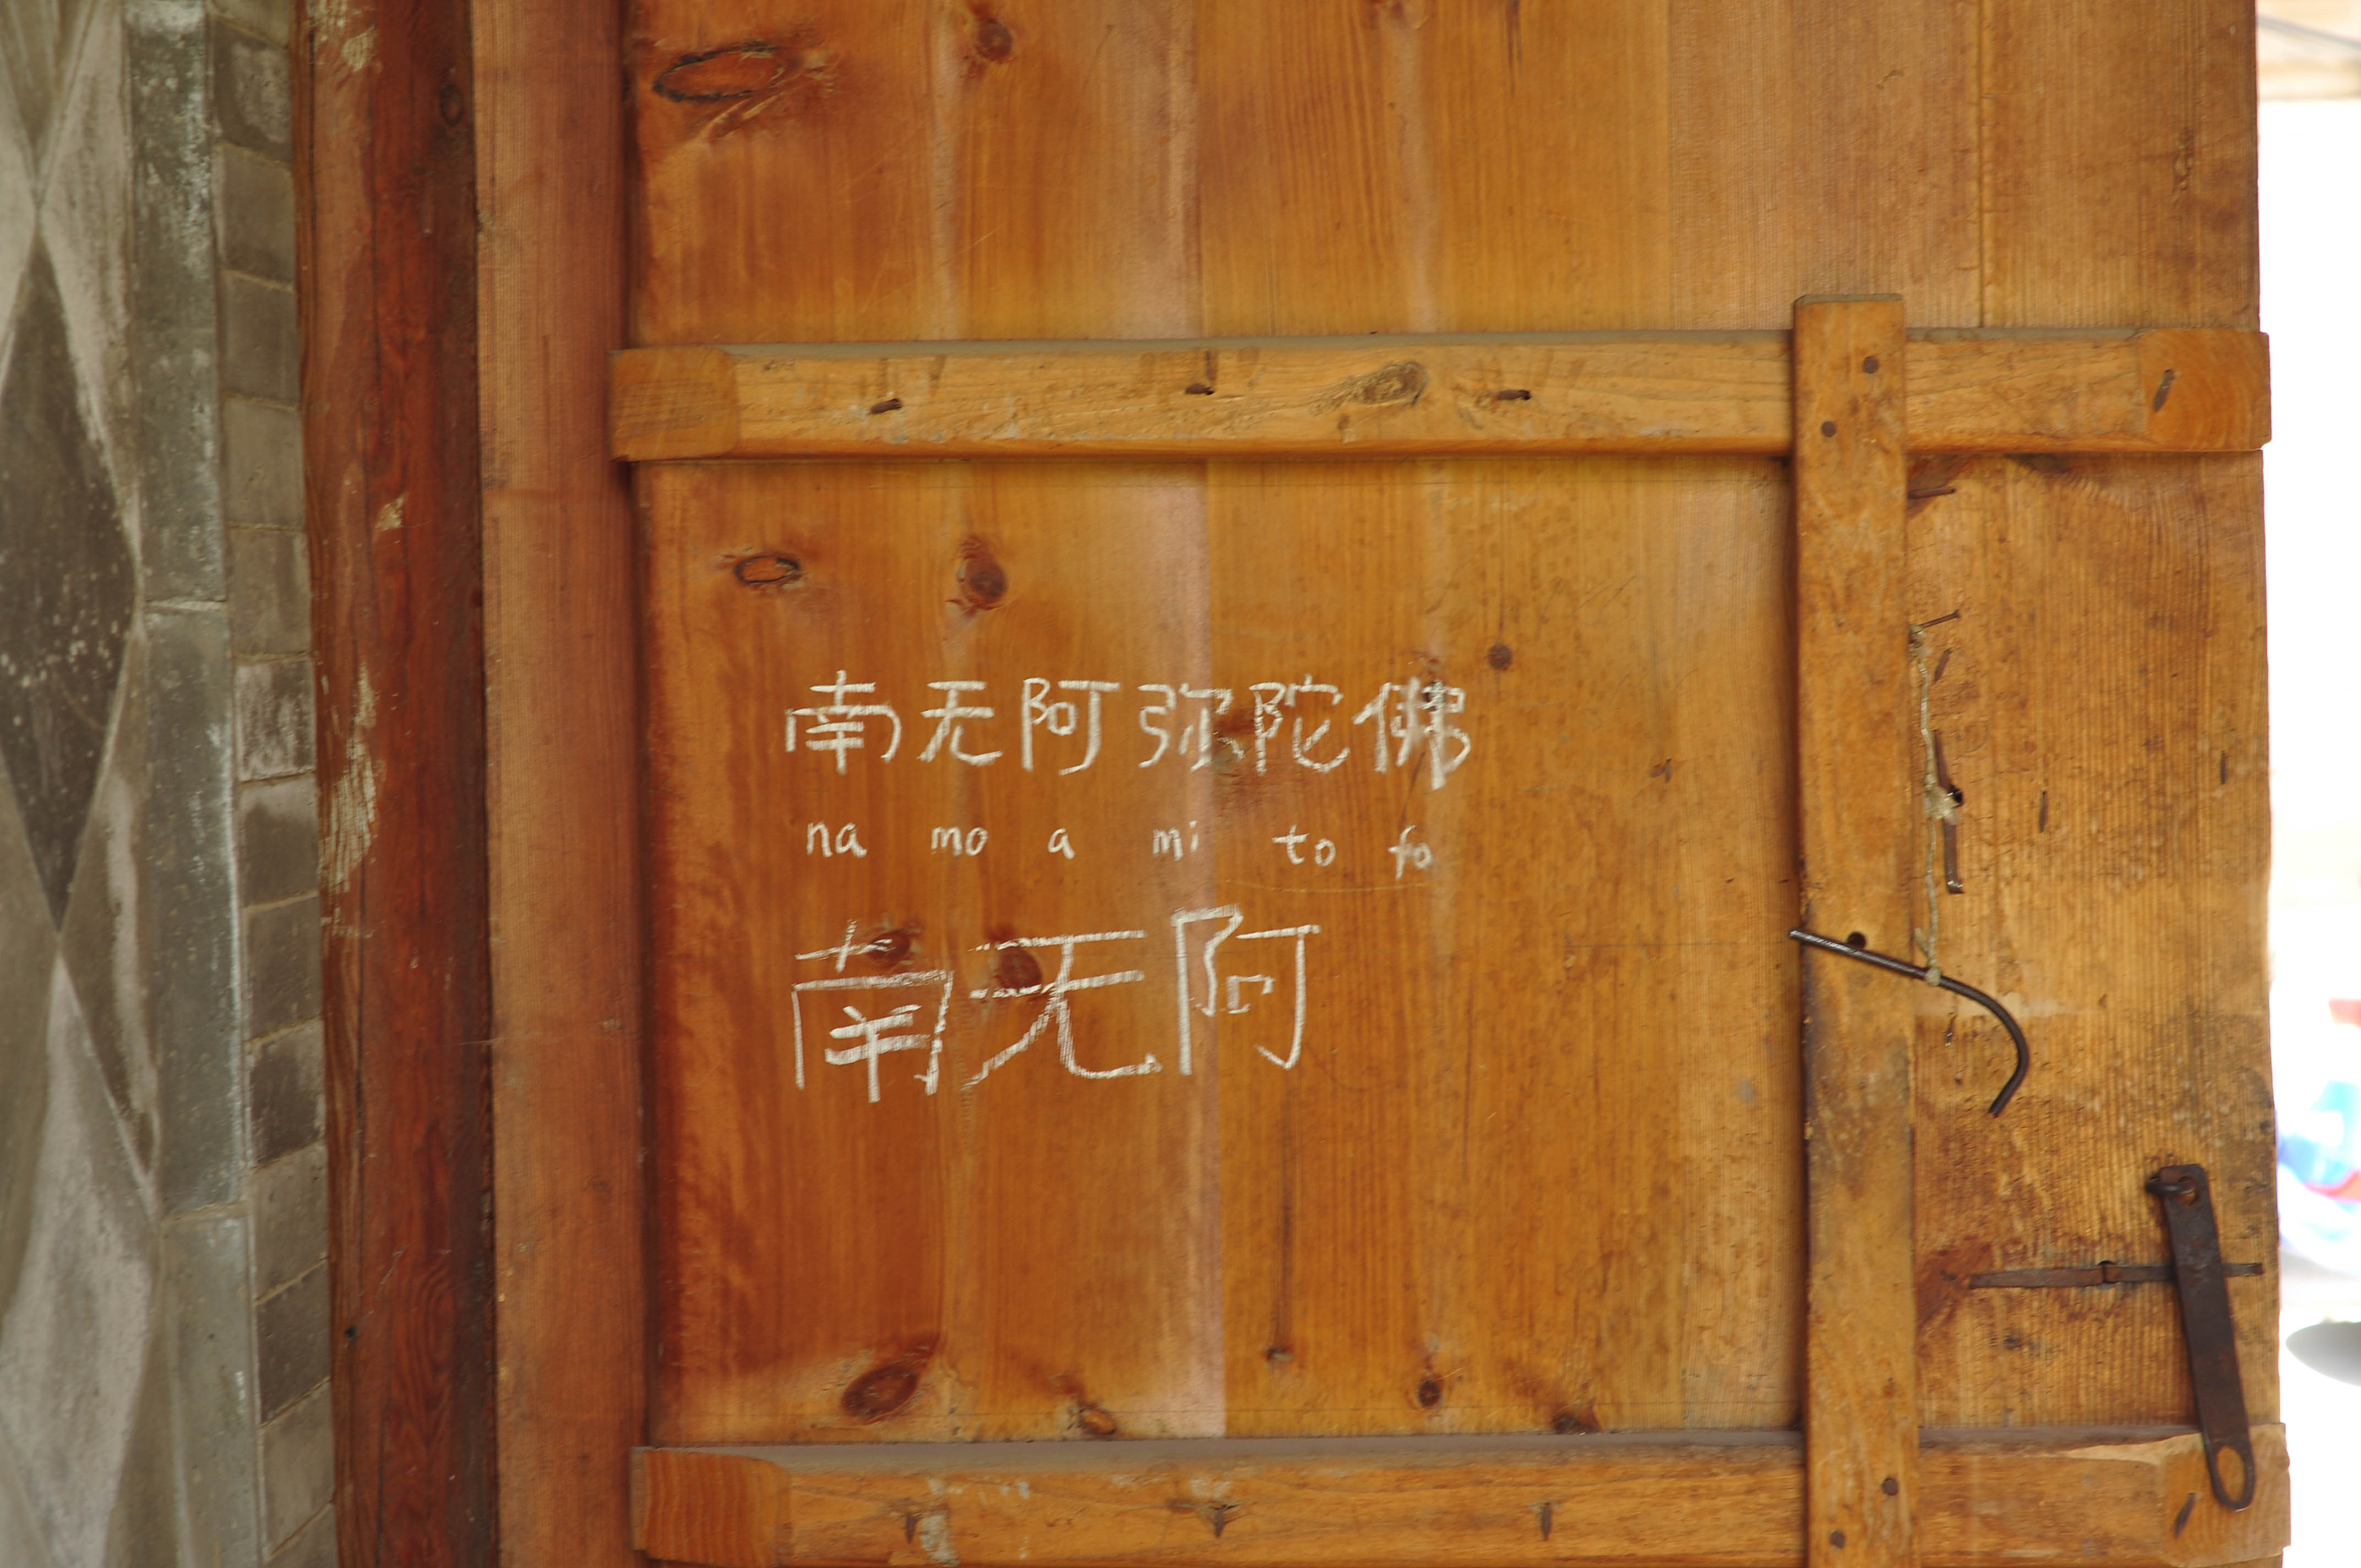 南无阿弥陀佛
na mo a mi to fo
南无阿